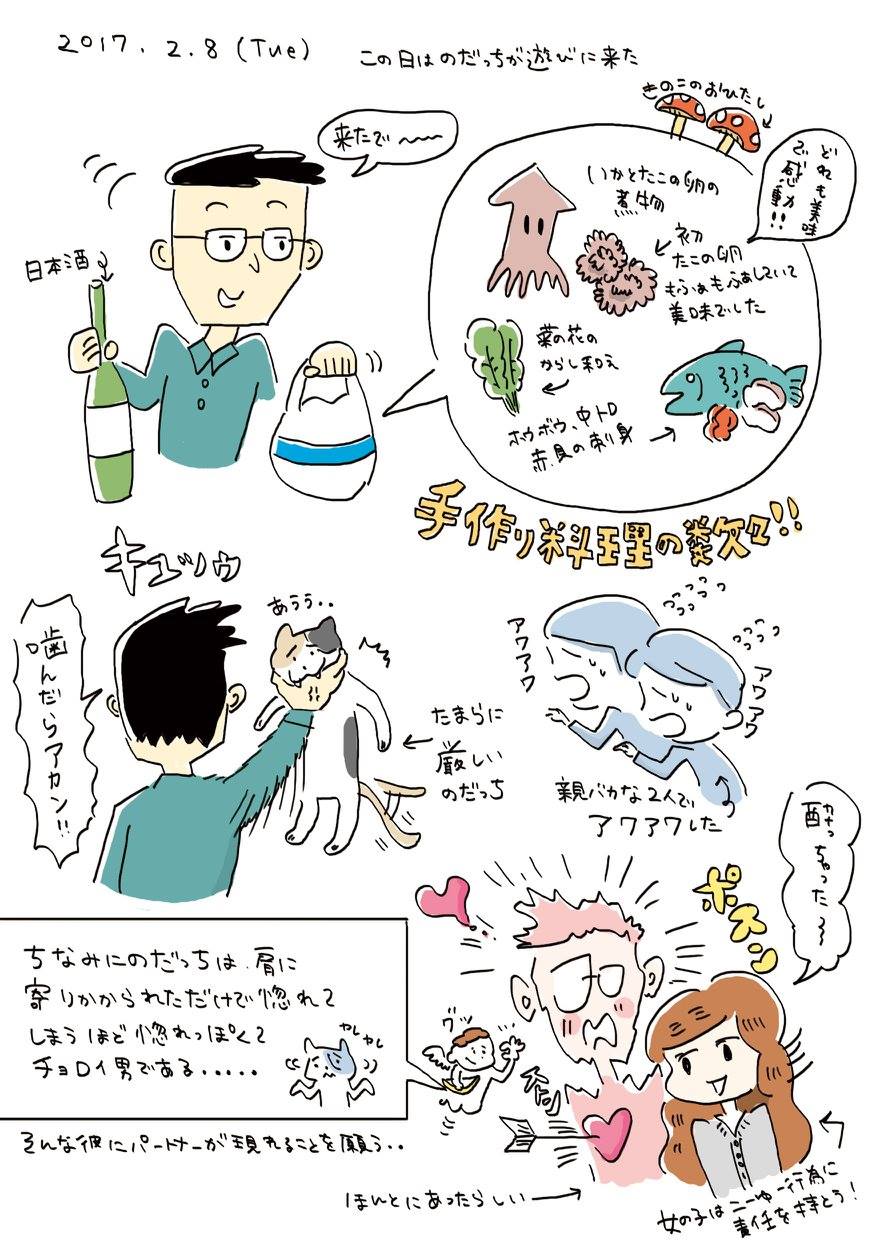 2017. 2.8 (Tue)
この日はのだっちが遊びに来た
来たで〜〜
日本酒
きのこのおひたし
どれも美味
で感動!!
いかとたこの卵の
煮物
初
たこの卵
もふぁもふぁしていて
美味でした
菜の花の
からし和え
ホウボウ、中トロ
赤貝の刺身
手作り料理の数々!!
キュッゥ
噛んだらアカン!!
あうぅ..
たまらに
厳しい
のだっち
アワアワ
アワアワ
親バカな2人で
アワアワした
酔っちゃった〜
ポスン
ちなみにのだっちは、肩に
寄りかかられただけで惚れて
しまうほど惚れっぽくて
チョロイ男である.....
ヤレ
ヤレ
グッ
そんな彼にパートナーが現れることを願う..
ほんとにあったらしい
女の子はこーゆー行為に
責任を持とう!